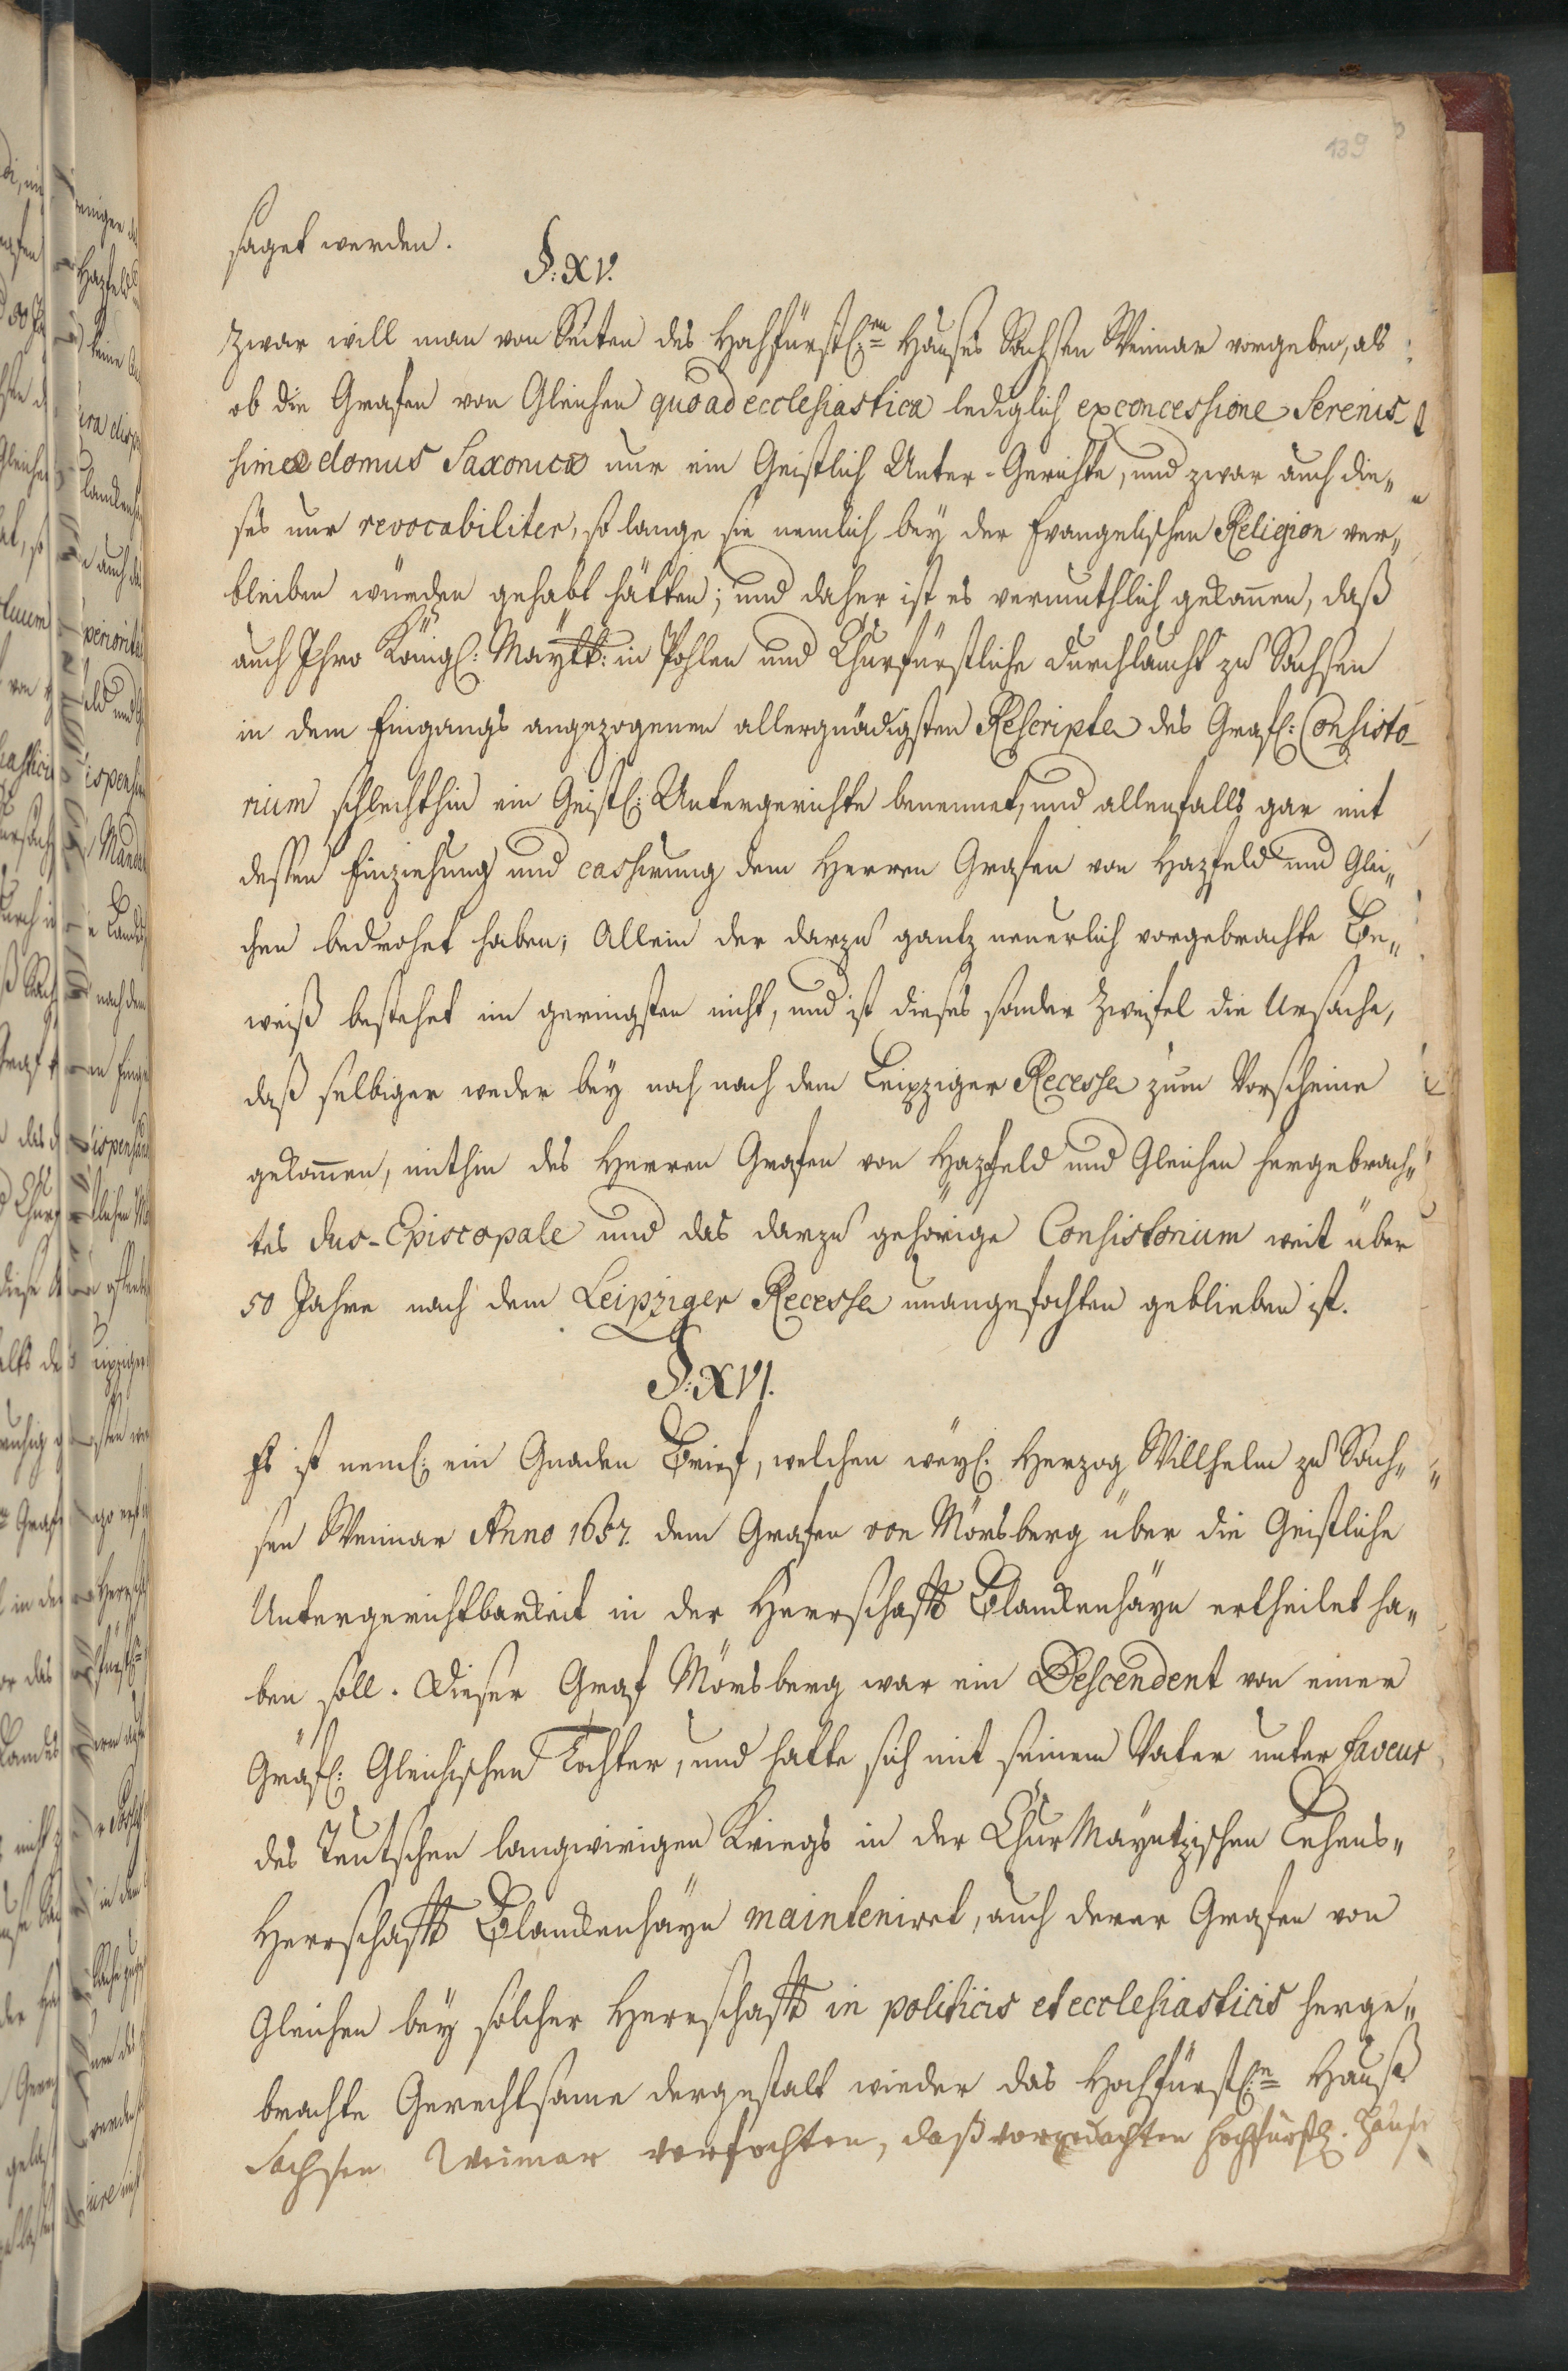 139
saget werden.
§. XV.
Zwar will man von Seiten des Hochfürstl:en Hauses Sachsen Weimar vorgeben, als
ob die Grafen von Gleichen quo ad ecclesiastica lediglich ex concessione Serenis-
simae domus Saxonicae nur ein Geistlich Unter-Gerichte, und zwar auch die„
ses nur revocabiliter, so lange sie nemlich bey der Evangelischen Religion ver„
bleiben würden gehabt hätten; und daher ist es vermuthlich gekom̄en, daß
auch Ihro Königl: Maytt: in Pohlen und Churfürstliche Durchlaucht zu Sachsen
in dem Eingangs angezogenen allergnädigsten Rescripte des Gräfl: Consisto-
rium schlechthin ein Geistl: Untergerichte benennet, und allenfalls gar mit
deßen Einziehung und cassirung dem Herren Grafen von Hazfeld und Glei„
chen bedrohet haben; Allein der darzu gantz neuerlich vorgebrachte Be„
weiß bestehet im geringsten nicht, und ist dieses sonder Zweifel die Ursache,
daß selbiger weder bey noch nach dem Leipziger Recesse zum Vorscheine
gekom̄en, mithin des Herren Grafen von Hazfeld und Gleichen hergebrach„
tes Jus-Episcopale und das darzu gehörige Consistorium weit über
50 Jahre nach dem Leipziger Recesse unangefochten geblieben ist.
§. XVI.
Es ist neml: ein Gnaden Brief, welchen weyl: Herzog Willhelm zu Sach„
sen Weimar Anno 1657. dem Grafen von Mörsberg über die Geistliche
Untergerichtbarkeit in der Herrschafft Blanckenhäyn ertheilet ha„
ben soll. Dieser Graf Mörsberg war ein Descendent von einer
Gräfl: Gleichischen Tochter, und hatte sich mit seinem Vater unter faveur
des Teutschen langwierigen Kriegs in der ChurMayntzischen Lehens„
Herrschafft Blanckenhäyn mainteniret, auch derer Grafen von
Gleichen bey solcher Herrschafft in politicis et ecclesiasticis herge„
brachte Gerechtsame dergestalt wieder das Hochfürstl:e Hauß
Sachsen Weimar verfochten, daß vorgedachten Hochfürstl. Hause